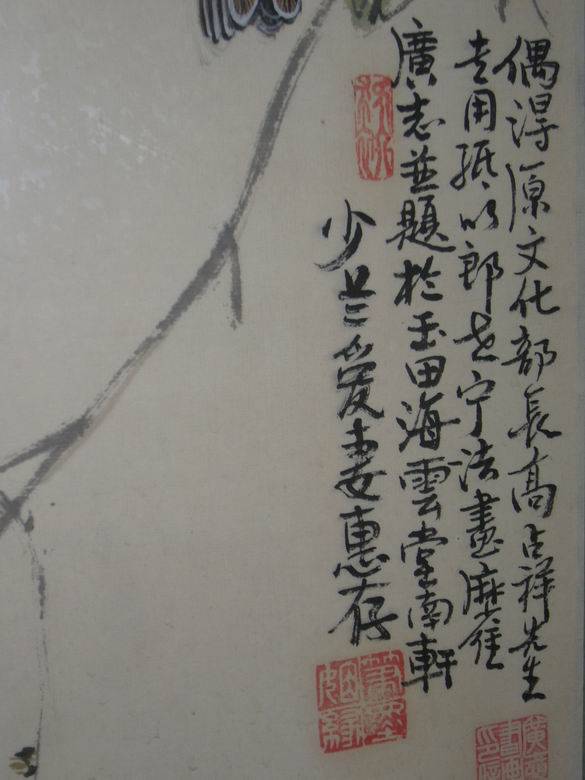 偶得原文化部長高占祥先生
专用紙以郎世宁法畫麻雀
廣志並題於玉田海雲堂南軒
少兰爱妻惠存